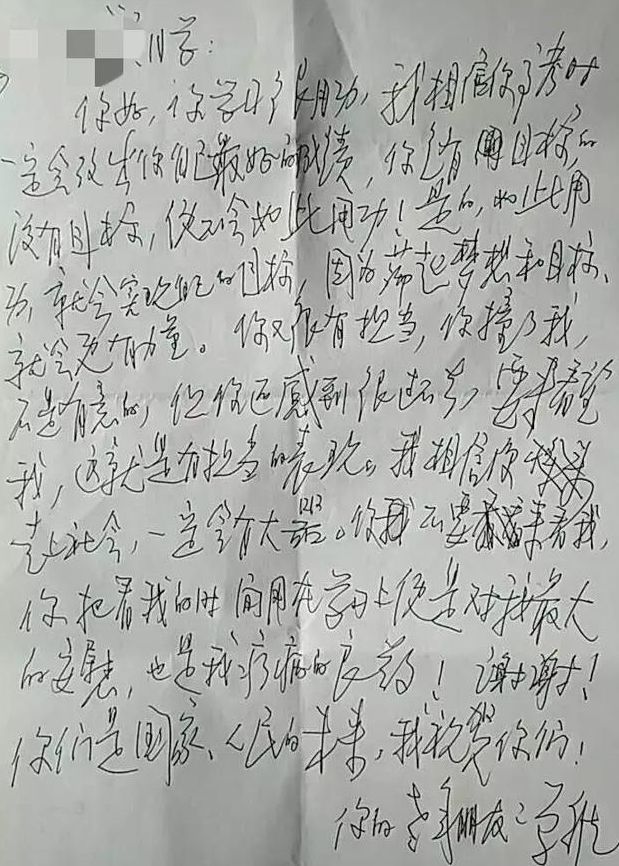 同学：
你好，你学习很用功，我相信你高考时
一定会考出你自己最好的成绩，你是有目标的
没有目标，便不会如此用功！是的，如此用
功，就会实现自己的目标，因为有梦想和目标、
就会更有力量。你又很有担当，你撞了我，
不是有意的，但你还感到很过意，要来看望
我，这就是有担当的表现。我相信你
走上社会，一定会有大。你不要来看我，
你把看我的时间用在学习上便是对我最大
的安慰，也是我疗病的良药！谢谢！
你们是国家、人民的未来，我祝贺你们！
你的老年朋友：